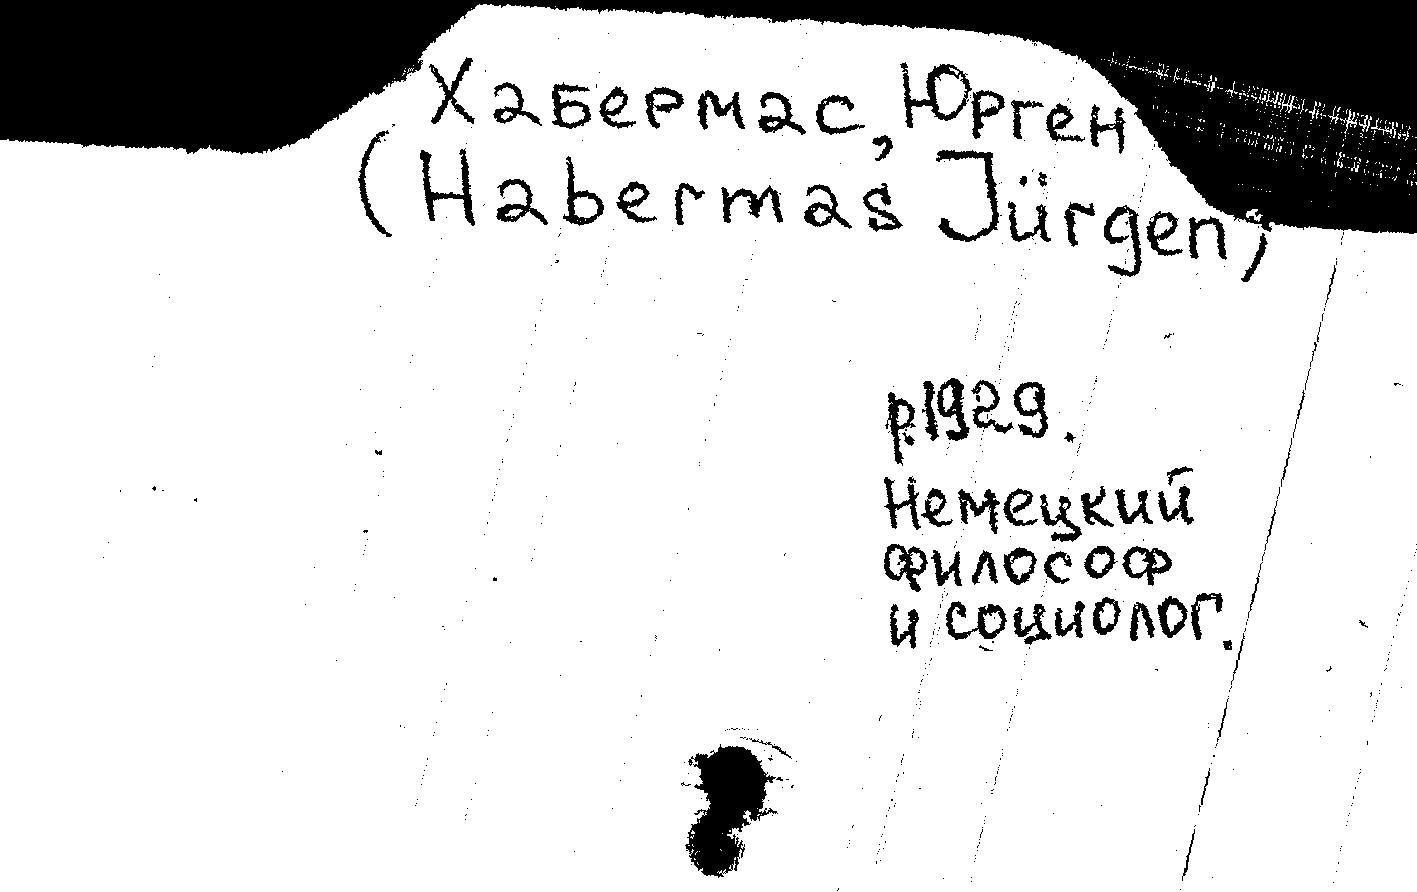 Хабермас, Юрген
(Habermas Jürgen)
р.1929.
Немецкий
философ
и социолог.